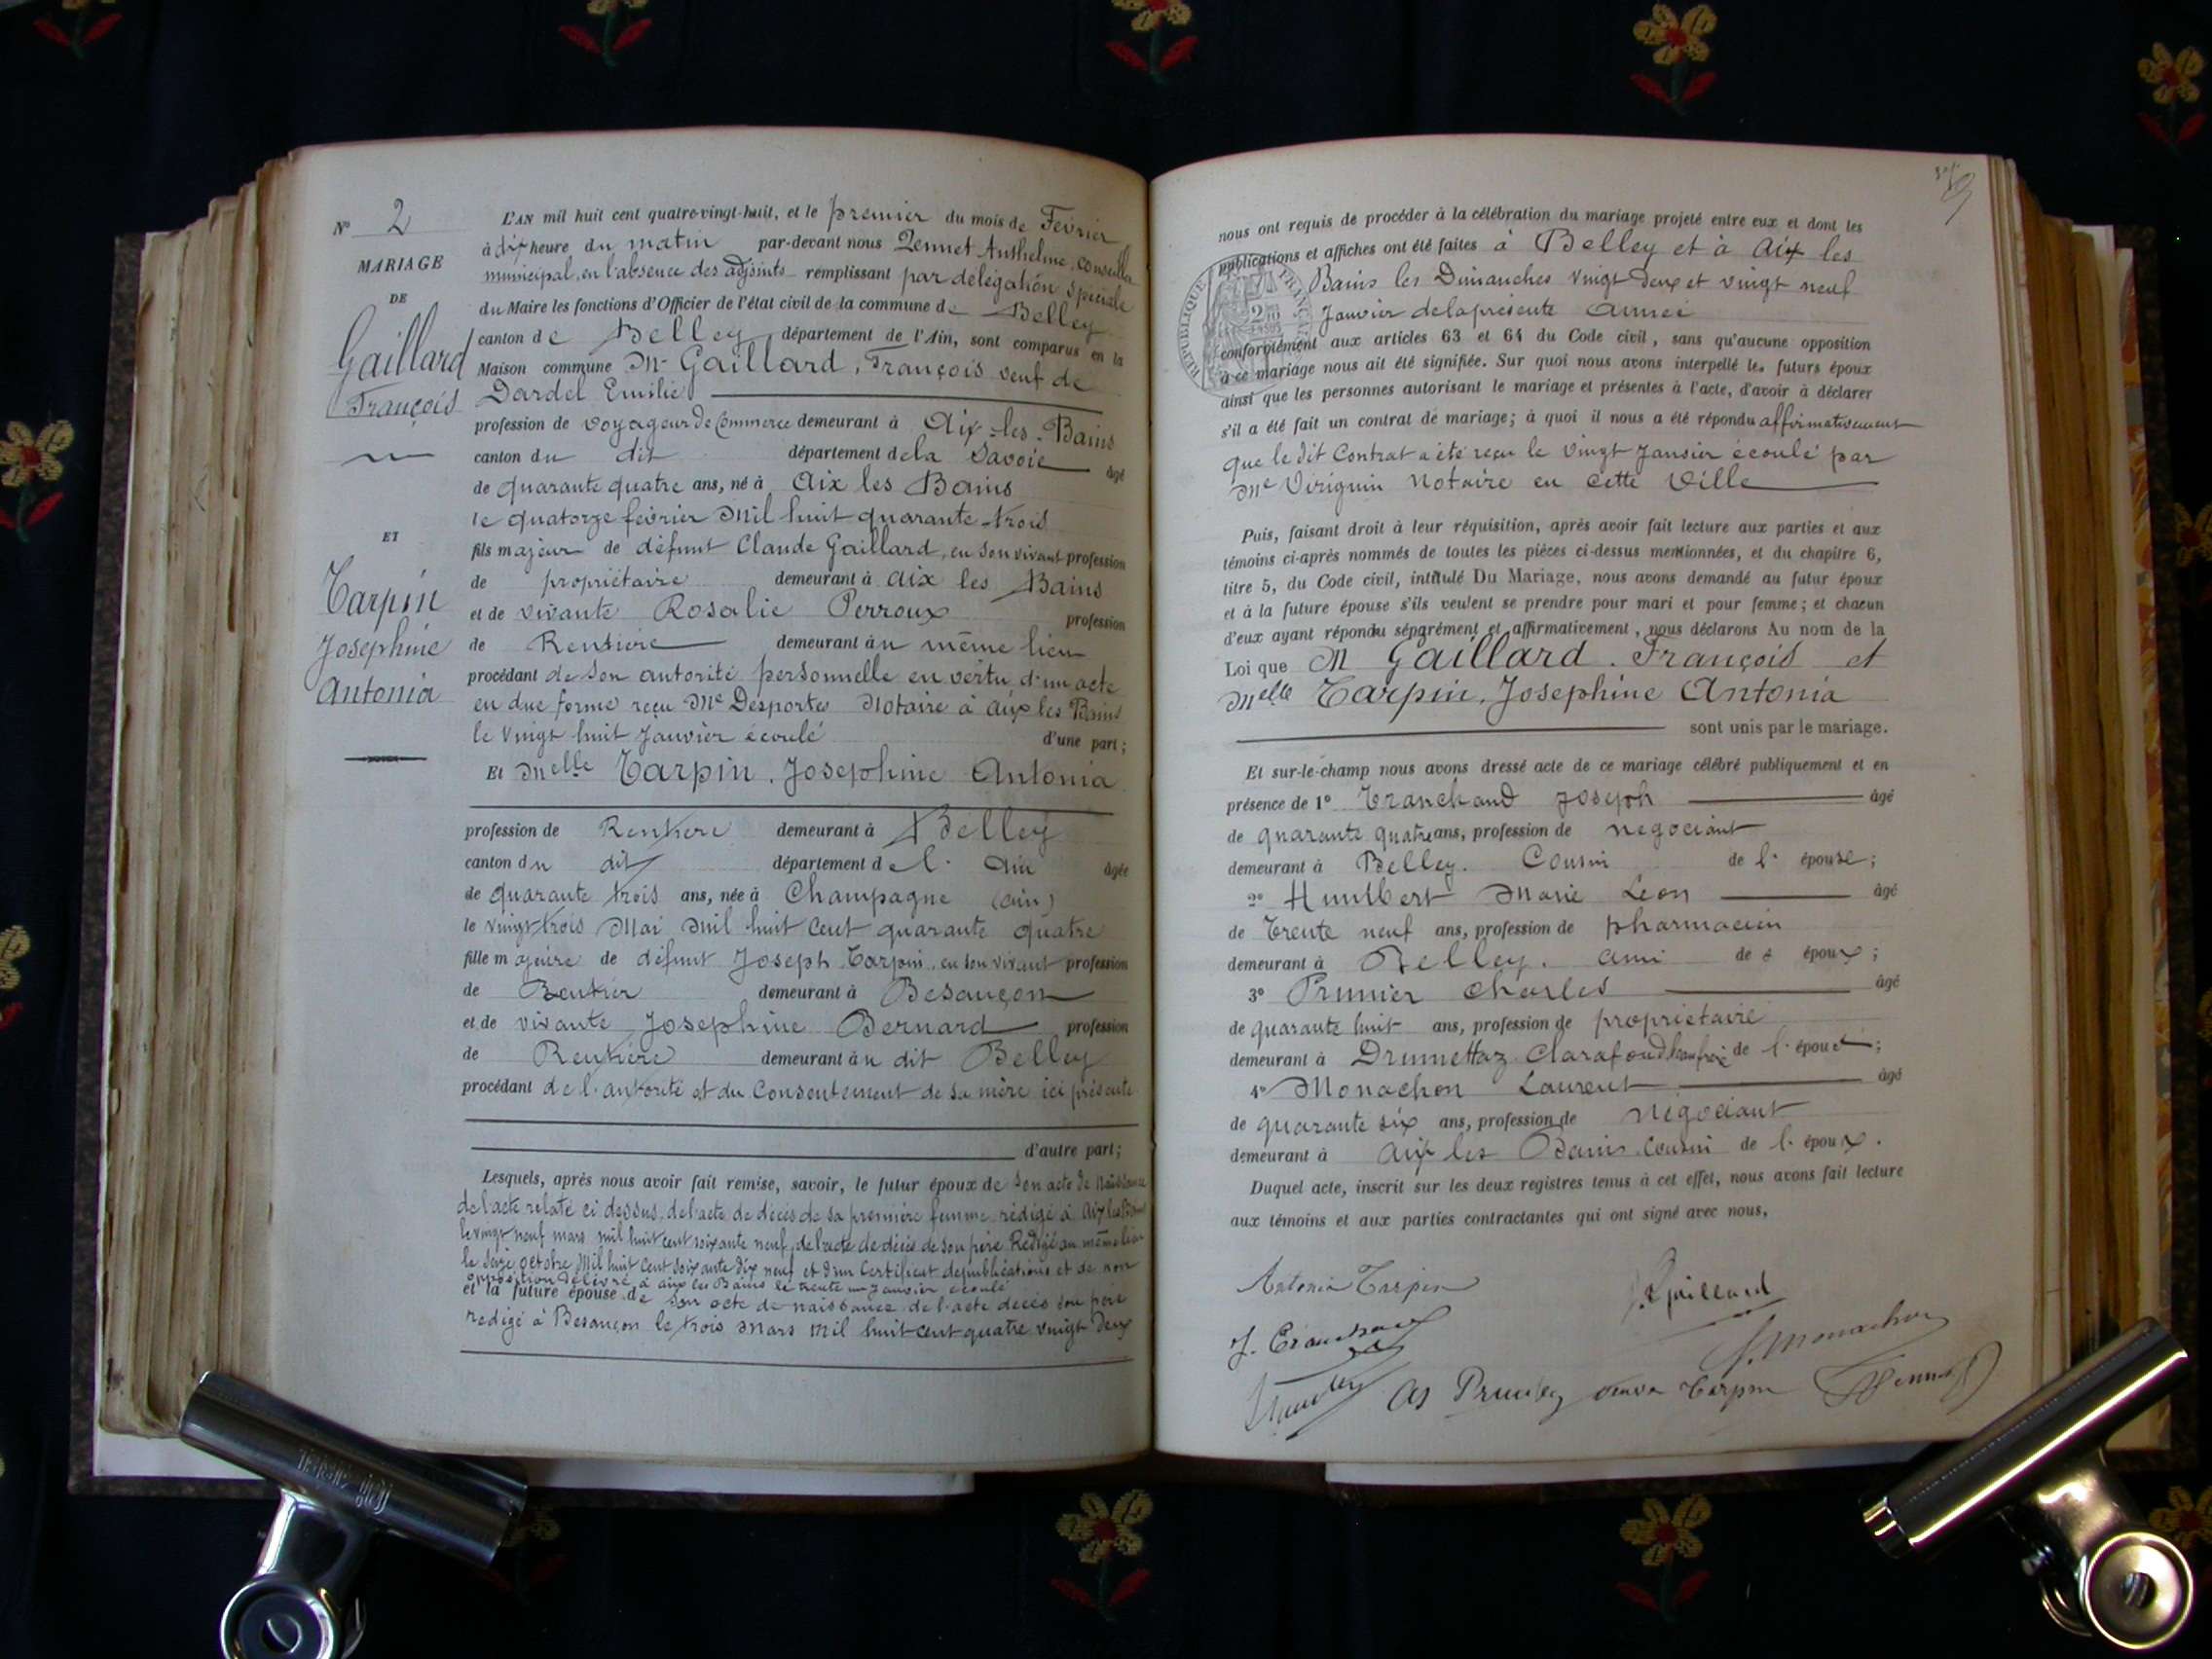 N° 2
MARIAGE
DE
Gaillard
François
ET
Tarpin
Josephine
Antonia
L'AN mil huit cent quatre-vingt-huit, et le premier du mois de Février
à dix heure du matin par-devant nous Zennet Anthelme, conseiller
municipal, en l'absence des adjoints remplissant par délégation spéciale
du Maire les fonctions d'Officier de l'état civil de la commune de Belley
canton de Belley département de l'Ain, sont comparus en la
Maison commune Mr Gaillard, François veuf de
Dardel Emilie
profession de voyageur de Commerce demeurant à Aix-les-Bains
canton du dit département de la Savoie âgé
de quarante quatre ans, né à Aix les Bains
le quatorze février mil huit quarante trois
fils majeur de défunt Claude Gaillard, en son vivant profession
de propriétaire demeurant à Aix les Bains
et de vivante Rosalie Perroux profession
de Rentière demeurant au même lieu
procédant de son autorité personnelle en vertu d'un acte
en due forme reçu Me Desportes Notaire à Aix les Bains
le vingt huit Janvier écoulé d'une part;
Et Melle Tarpin, Josephine Antonia
profession de Rentière demeurant à Belley
canton du dit département de l'Ain âgée
de quarante trois ans, née à Champagne (ain)
le vingt trois Mai mil huit Cent quarante quatre
fille majeure de défunt Joseph Tarpin, en son vivant profession
de Rentier demeurant à Besançon
et de vivante Josephine Bernard profession
de Rentière demeurant au dit Belley
procédant de l'autorité et du Consentement de sa mère ici présente
d'autre part;
Lesquels, après nous avoir fait remise, savoir, le futur époux de son acte de Naissance
de l'acte relaté ci dessus, de l'acte de décès de sa première femme rédigé à Aix les Bains
le vingt neuf mars mil huit cent soixante neuf, de l'acte de décès de son père Rédigé au même lieu
le seize octobre Mil huit Cent soixante dix neuf et d'un Certificat de publications et de non
opposition délivré à aix les Bains le trente un Janvier écoulé
et la future épouse de son acte de naissance de l'acte décès son père
redigé à Besançon le trois Mars mil huit cent quatre vingt deux
nous ont requis de procéder à la célébration du mariage projeté entre eux et dont les
publications et affiches ont été faites à Belley et à Aix les
Bains les Dimanches vingt deux et vingt neuf
Janvier de la présente année
conformément aux articles 63 et 64 du Code civil, sans qu'aucune opposition
à ce mariage nous ait été signifiée. Sur quoi nous avons interpellé les futurs époux
ainsi que les personnes autorisant le mariage et présentes à l'acte, d'avoir à déclarer
s'il a été fait un contrat de mariage; à quoi il nous a été répondu affirmativement
que le dit Contrat a été reçu le vingt Janvier écoulé par
Me Viriguin Notaire en cette Ville
RÉPUBLIQUE FRANÇAISE
Puis, faisant droit à leur réquisition, après avoir fait lecture aux parties et aux
témoins ci-après nommés de toutes les pièces ci-dessus mentionnées, et du chapitre 6,
titre 5, du Code civil, intitulé Du Mariage, nous avons demandé au futur époux
et à la future épouse s'ils veulent se prendre pour mari et pour femme; et chacun
d'eux ayant répondu séparément et affirmativement, nous déclarons Au nom de la
Loi que M Gaillard. François et
Melle Tarpin, Josephine Antonia
sont unis par le mariage.
Et sur-le-champ nous avons dressé acte de ce mariage célébré publiquement et en
présence de 1° Tranchand Joseph âgé
de quarante quatre ans, profession de négociant
demeurant à Belley. Cousin de l'épouse;
2° Humbert Marie Leon âgé
de Trente neuf ans, profession de pharmacien
demeurant à Belley. ami des époux;
3° Prunier Charles âgé
de quarante huit ans, profession de propriétaire
demeurant à Drumettaz Clarafond beau frère de l'époux;
4° Monachon Laurent âgé
de quarante six ans, profession de Négociant
demeurant à Aix les Bains Cousin de l'époux.
Duquel acte, inscrit sur les deux registres tenus à cet effet, nous avons fait lecture
aux témoins et aux parties contractantes qui ont signé avec nous.
Antonia Tarpin
Gaillard
J. Tranchand
Monachon
veuve Tarpin